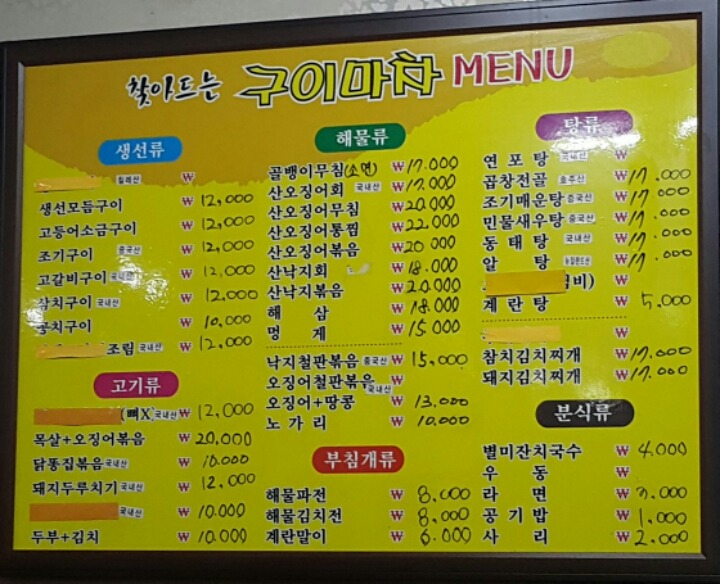 찾아드는 구이마차 MENU
생선류
칠레산 ₩
생선모듬구이 ₩ 12,000
고등어소금구이 ₩ 12,000
조기구이 중국산 ₩ 12,000
고갈비구이 국내산 ₩ 12,000
삼치구이 국내산 ₩ 12,000
꽁치구이 ₩ 10,000
조림 국내산 ₩ 12,000
고기류
(뼈X) 국내산 ₩ 12,000
목살+오징어볶음 ₩ 20,000
닭똥집볶음 국내산 ₩ 10.000
돼지두루치기 국내산 ₩ 12,000
국내산 ₩ 10.000
두부+김치 ₩ 10.000
해물류
골뱅이무침(소면) ₩ 17.000
산오징어회 국내산 ₩ 17.000
산오징어무침 ₩ 20.000
산오징어통찜 ₩ 22.000
산오징어볶음 ₩ 20.000
산낙지회 ₩ 18.000
산낙지볶음 ₩ 20.000
해삼 ₩ 18.000
멍게 ₩ 15.000
낙지철판볶음 중국산 ₩ 15,000
오징어철판볶음 국내산 ₩
오징어+땅콩 ₩ 13.000
노가리 ₩ 10.000
부침개류
해물파전 ₩ 8,000
해물김치전 ₩ 8,000
계란말이 ₩ 6.000
탕류
연포탕 국내산 ₩
곱창전골 호주산 ₩ 17.000
조기매운탕 중국산 ₩ 17.000
민물새우탕 중국산 ₩ 17.000
동태탕 국내산 ₩ 17.000
알탕 뉴질랜드산 ₩ 17.000
비) ₩
계란탕 ₩ 5,000
₩
참치김치찌개 ₩ 17.000
돼지김치찌개 ₩ 17.000
분식류
별미잔치국수 ₩ 4.000
우동 ₩
라면 ₩ 3.000
공기밥 ₩ 1,000
사리 ₩ 2.000